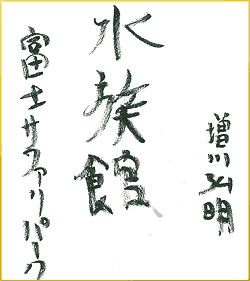 増川弘明
水族館
富士サファリパーク